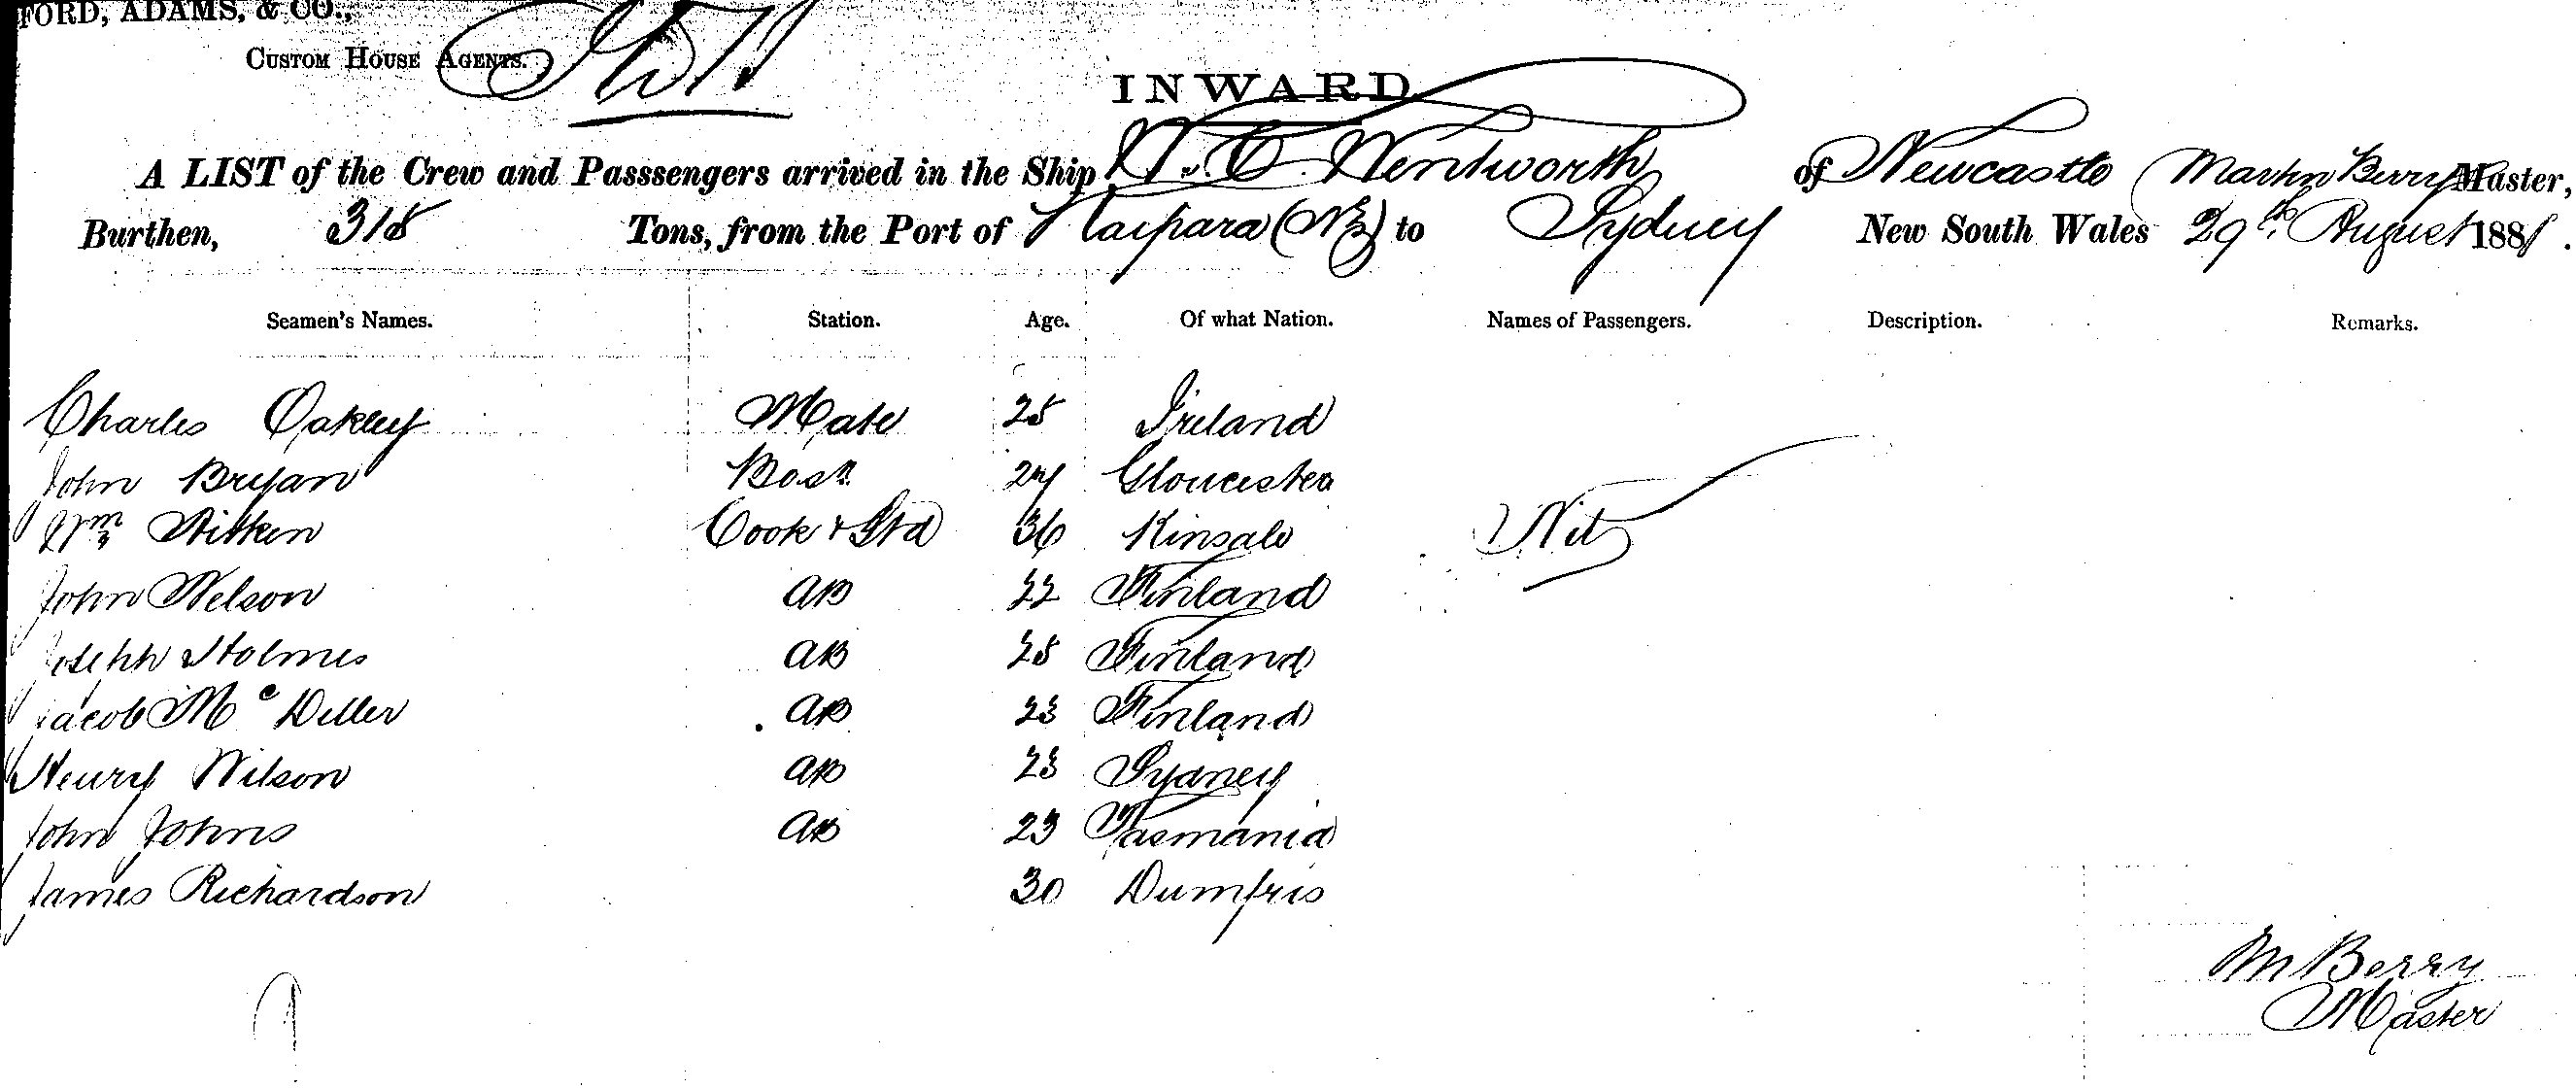 FORD, ADAMS, & CO.,
CUSTOM HOUSE AGENTS.
INWARD
A LIST of the Crew and Passsengers arrived in the Ship W. C. Wentworth of Newcastle Martin Berry Master,
Burthen, 318 Tons, from the Port of Kaipara (NZ) to Sydney New South Wales 29th August 1881.
Seamen's Names. Station. Age. Of what Nation. Names of Passengers. Description. Remarks.
Charles Oakley Mate 25 Ireland
John Bryan Bosn 27 Gloucester
Wm Aitken Cook & Std 36 Kinsale Nil
John Nelson AB 22 Finland
Joseph Holmes AB 25 Finland
Jacob Mc Diller AB 23 Finland
Henry Wilson AB 23 Sydney
John Johns AB 23 Tasmania
James Richardson 30 Dumfris
M Berry
Master